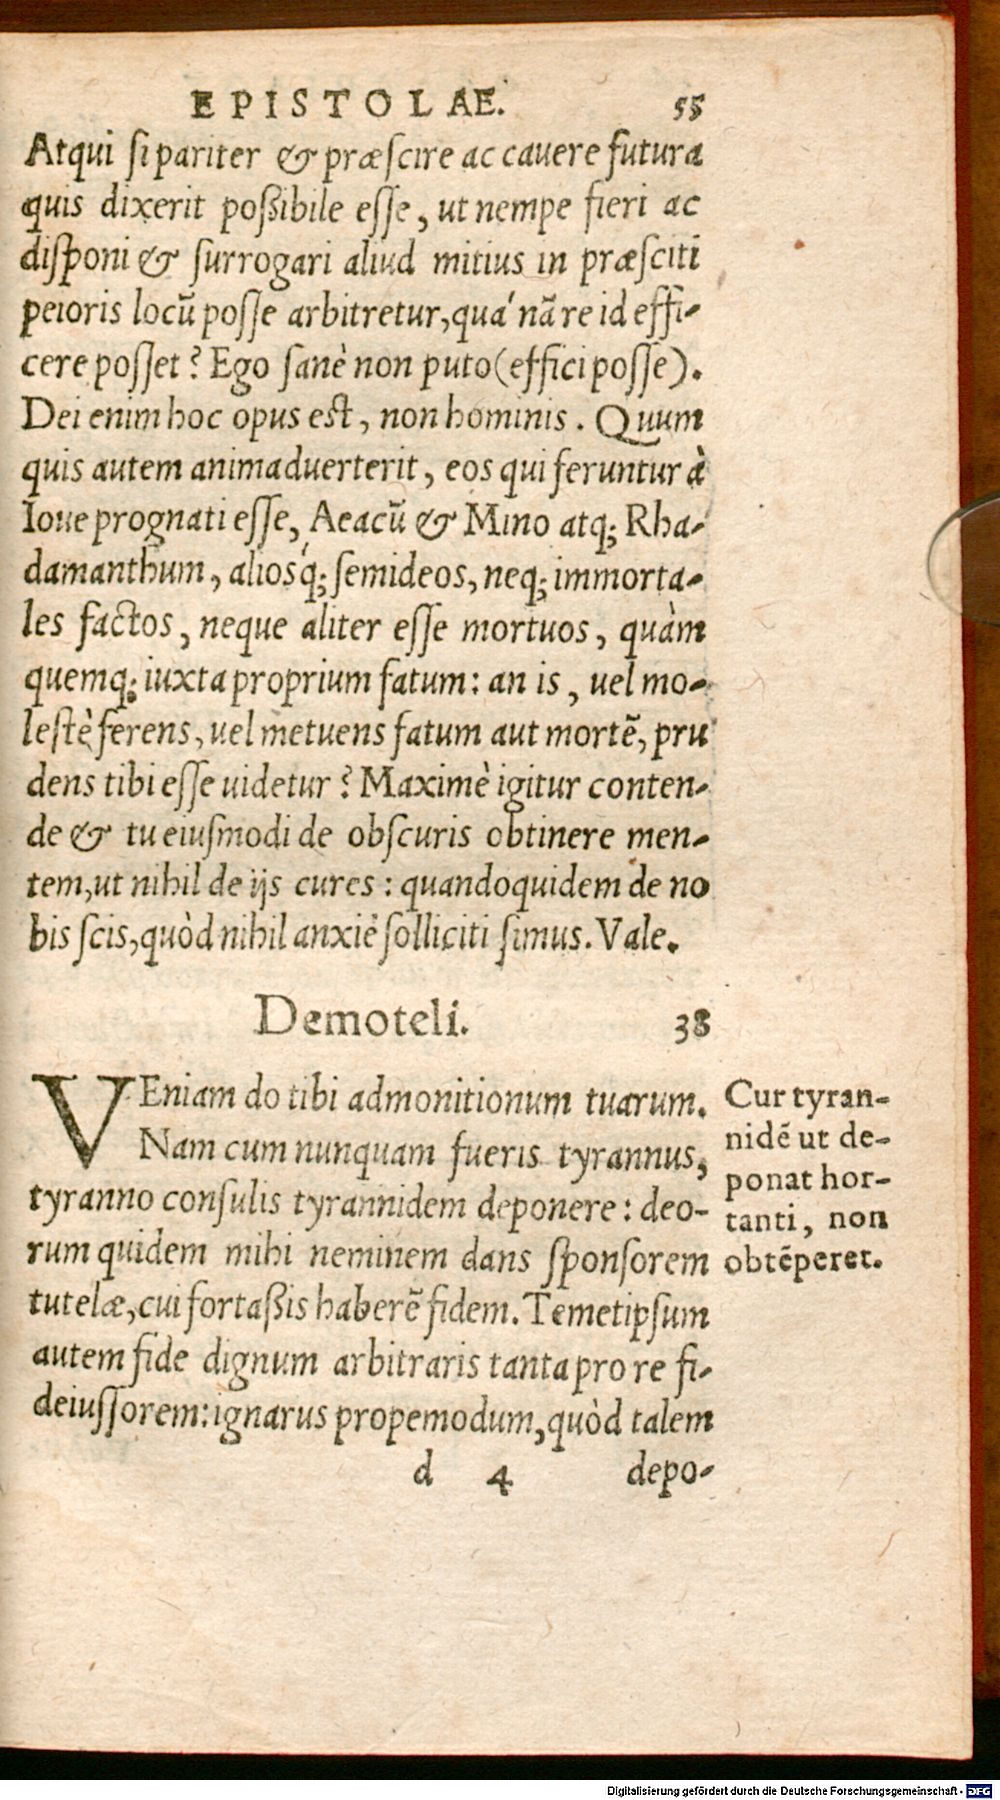 EPISTOLAE. 55
Atqui si pariter & præscire ac cauere futura
quis dixerit poßibile esse, ut nempe fieri ac
disponi & surrogari aliud mitius in præsciti
peioris locū posse arbitretur, qua´nā re id effi-
cere posset? Ego sanè non puto (effici posse).
Dei enim hoc opus est, non hominis. Quum
quis autem animaduerterit, eos qui feruntur à
Ioue prognati esse, Aeacū & Mino atq; Rha-
damanthum, aliosq́; semideos, neq; immorta-
les factos, neque aliter esse mortuos, quàm
quemq; iuxta proprium fatum: an is, uel mo-
lestè ferens, uel metuens fatum aut mortē, pru
dens tibi esse uidetur? Maximè igitur conten-
de & tu eiusmodi de obscuris obtinere men-
tem, ut nihil de ijs cures: quandoquidem de no
bis scis, quòd nihil anxiè solliciti simus. Vale.
Demoteli. 38
VEniam do tibi admonitionum tuarum.
Nam cum nunquam fueris tyrannus,
tyranno consulis tyrannidem deponere: deo-
rum quidem mihi neminem dans sponsorem
tutelæ, cui fortaßis haberē fidem. Temetipsum
autem fide dignum arbitraris tanta pro re fi-
deiussorem: ignarus propemodum, quòd talem
d 4 depo-
Cur tyran-
nidē ut de-
ponat hor-
tanti, non
obtēperet.
Digitalisierung gefördert durch die Deutsche Forschungsgemeinschaft - DFG